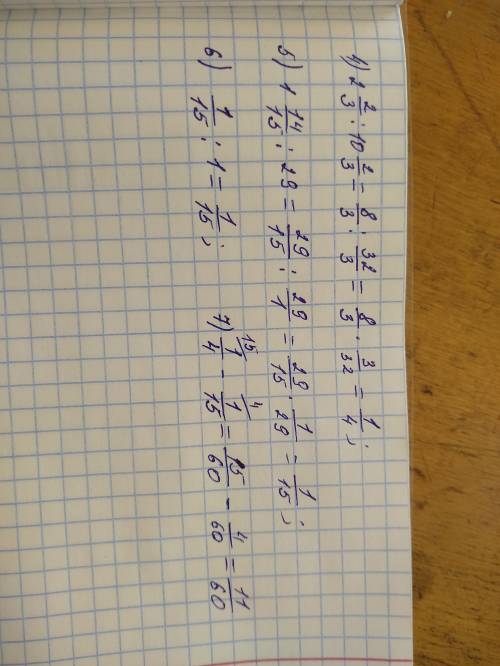 4) 2 2/3 : 10 2/3 = 8/3 : 32/3 = 8/3 · 3/32 = 1/4;
5) 1 14/15 : 29 = 29/15 : 29/1 = 29/15 · 1/29 = 1/15;
6) 1/15 : 1 = 1/15; 7) 15/ 1/4 - 4/ 1/15 = 15/60 - 4/60 = 11/60